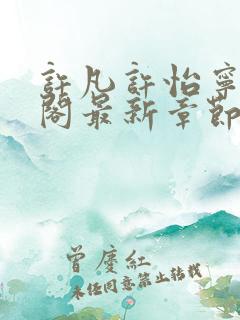 許凡許怡寧
閣最新章節
曾慶紅
未经同意禁止转载